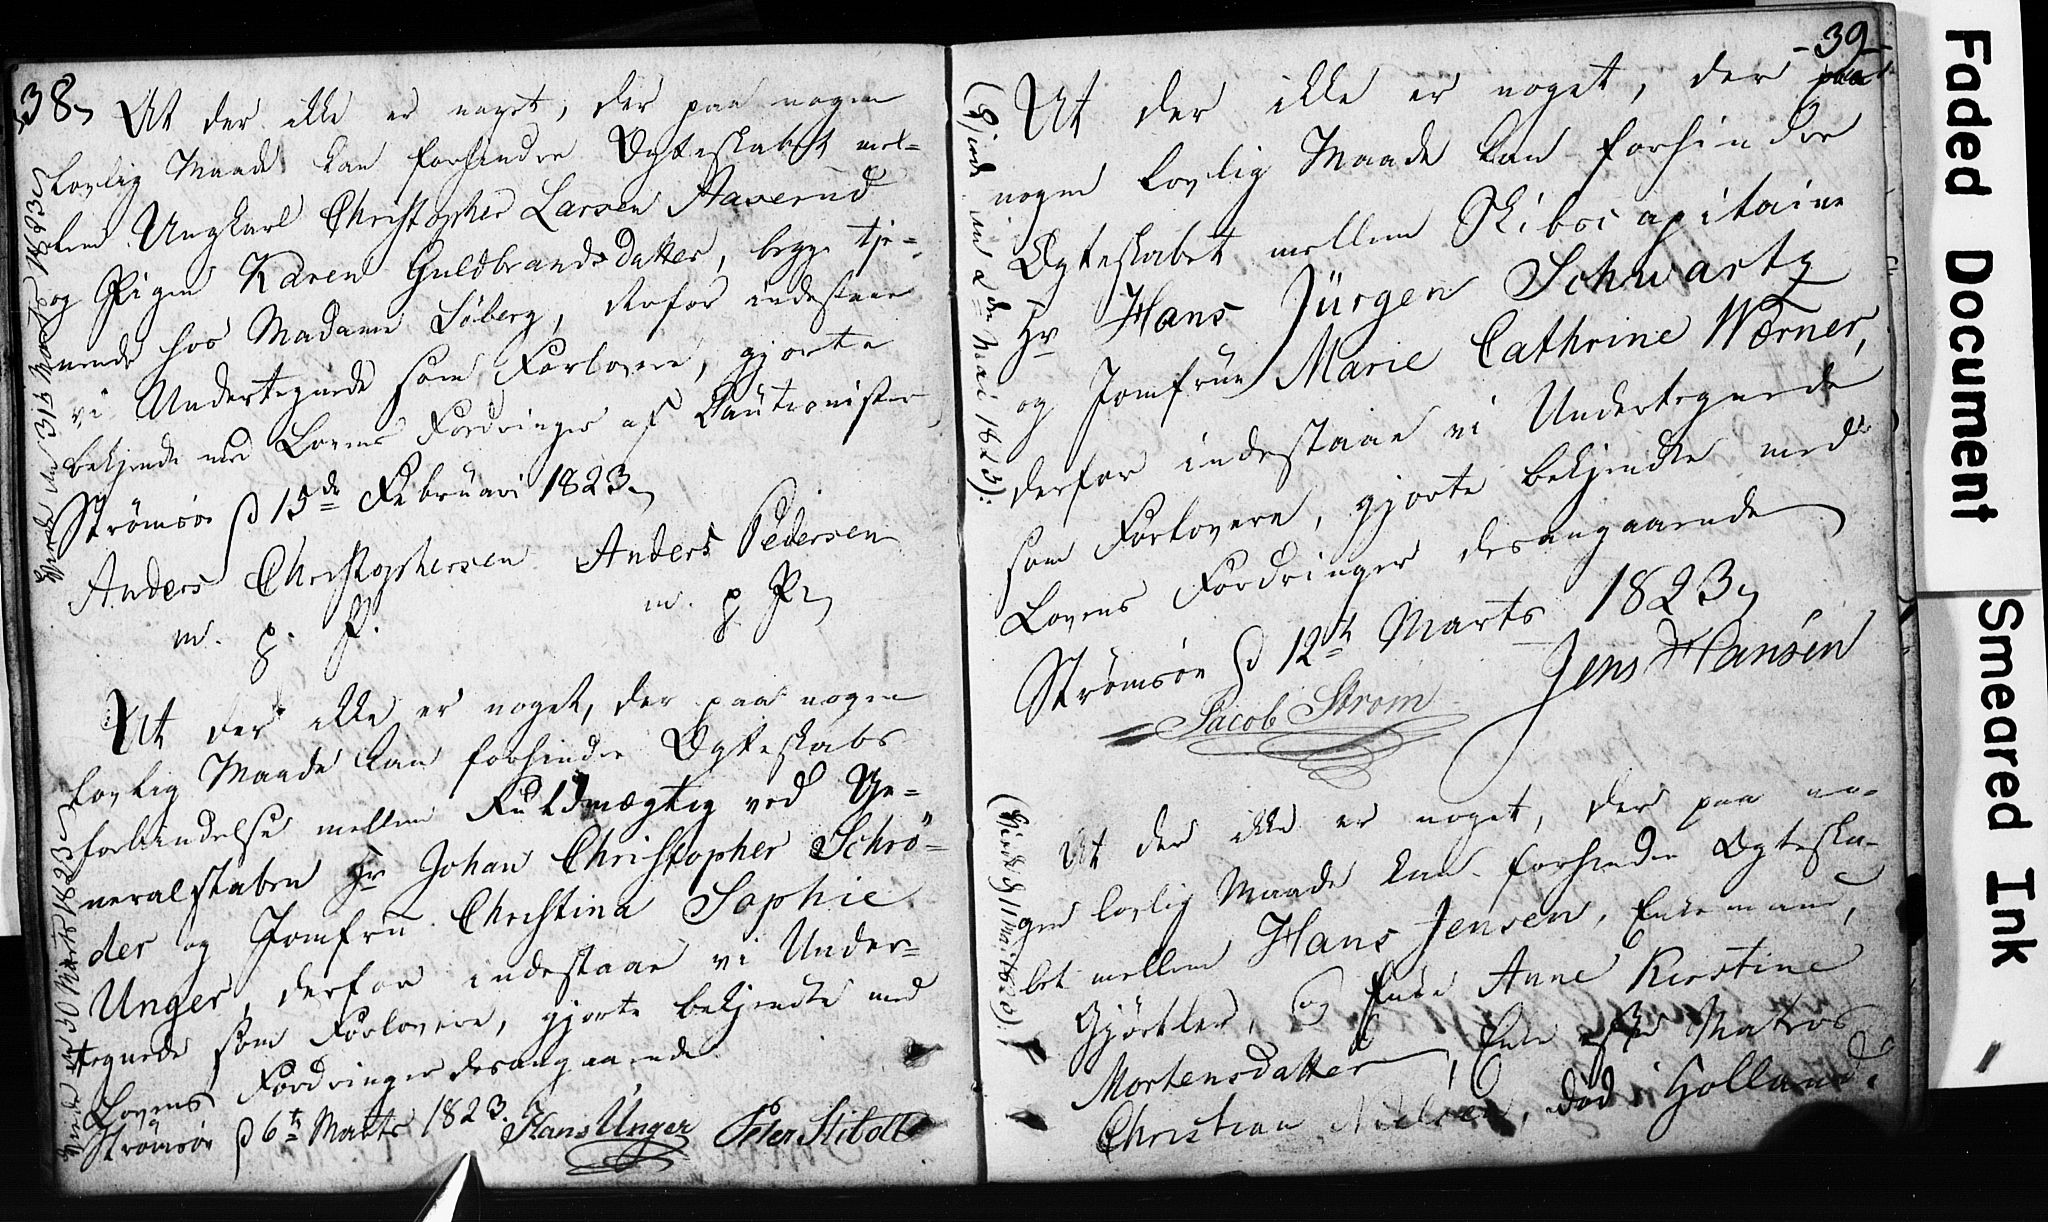 38
At der ikke er noget, der paa nogen
lovlig Maade kan forhindre Ægteskabet mel-
lem Ungkarl Christopher Larsen Aaserud
og Pigen Karen Guldbrandsdatter, begge tje-
nende hos Madame Söberg, derfor indestaae
vi Undertegnede som Forlovere, gjorte
bekjendte med Lovens Fordringer af Cautionister
Strömsöe d 15de Februari 1823
Anders Christophersen Anders Pedersen
m. p. P. m. p. P.
Viede den 31s Marts 1823
At der ikke er noget, der paa nogen
lovlig Maade kan forhindre Ægteskabs
forbindelse mellem Fuldmægtig ved Ge-
neralstaben Hr Johan Christopher Schrö-
der og Jomfru Christina Sophie
Unger, derfor indestaae vi Under-
tegnede som Forlovere, gjorte bekjendte med
Lovens Fordringer desangaaende
Strömsöe d 6te Marts 1823.
Hans Unger Peter Stibolt
Viede den 30 Marts 1823
- 39 -
At der ikke er noget, der paa
nogen lovlig Maade kan forhindre
Ægteskabet mellem Skibscapitaine
Hr Hans Jürgen Schwartz
og Jomfrue Marie Cathrine Wærner,
derfor indestaae vi Undertegnede
som Forlovere, gjorte bekjendte med
Lovens Fordringer desangaaende
Strömsöe d 12te Marts 1823
Jens Hansen
Jacob Strøm
(Viede den 2den Mai 1823):
At der ikke er noget, der paa no-
gen lovlig Maade kan forhindre Ægteska-
bet mellem Hans Jensen, Enkemand,
Gjörtler, og Enke Anne Kirstine
Mortensdatter, Enke efter Matros
Christian Nielsen, död i Holland.
Faded Document
Smeared Ink